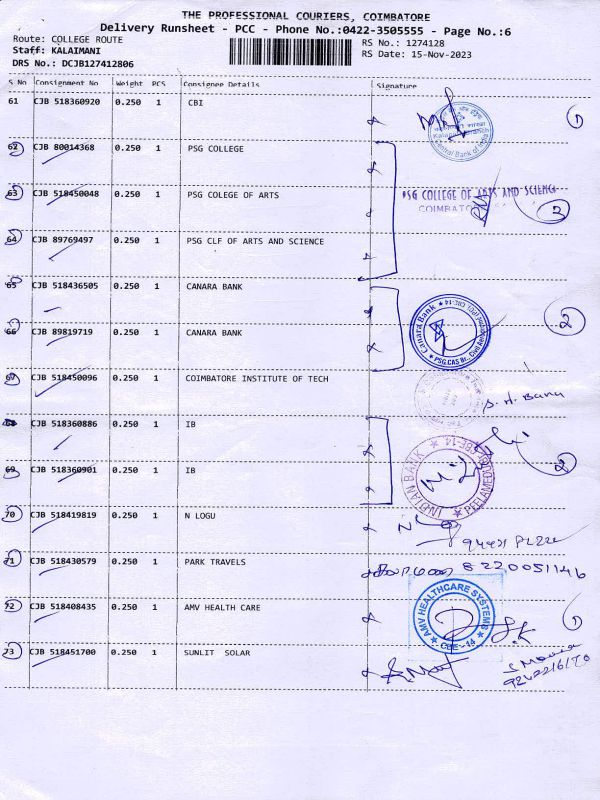 THE PROFESSIONAL COURIERS, COIMBATORE
Delivery Runsheet - PCC - Phone No.:0422-3505555 - Page No.:6
Route: COLLEGE ROUTE
Staff: KALAIMANI
DRS No.: DCJB127412806
RS No.: 1274128
RS Date: 15-Nov-2023
S No Consignment No Weight PCS Consignee Details Signature
61 CJB 518360920 0.250 1 CBI
Central Bank of India
1
62 CJB 80014368 0.250 1 PSG COLLEGE
63 CJB 518450048 0.250 1 PSG COLEGE OF ARTS
PSG COLLEGE OF ARTS AND SCIENCE
COIMBATORE
2
64 CJB 89769497 0.250 1 PSG CLF OF ARTS AND SCIENCE
65 CJB 518436505 0.250 1 CANARA BANK
66 CJB 89819719 0.250 1 CANARA BANK
Canara Bank
2
67 CJB 518450096 0.250 1 COIMBATORE INSTITUTE OF TECH
S. H. Banu
68 CJB 518360886 0.250 1 IB
69 CJB 518360901 0.250 1 IB
INDIAN BANK
CBE-14
2
70 CJB 518419819 0.250 1 N LOGU
71 CJB 518430579 0.250 1 PARK TRAVELS
8220051146
72 CJB 518408435 0.250 1 AMV HEALTH CARE
AMV HEALTHCARE SYSTEMS
CBE-14
1
73 CJB 518451700 0.250 1 SUNLIT SOLAR